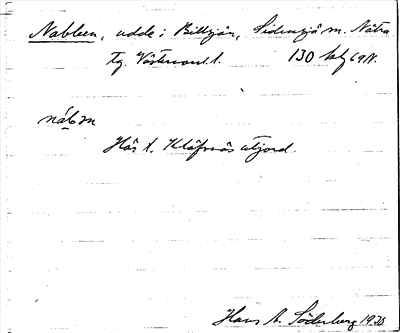 Nabben, udde i Billsjön, Sidensjö sn. Nätra
tg. Västernorrl. l. 130 kbl 69N.
nábm
Hör t. Klöfsnäs utjord.
Hans A. Söderberg 1935